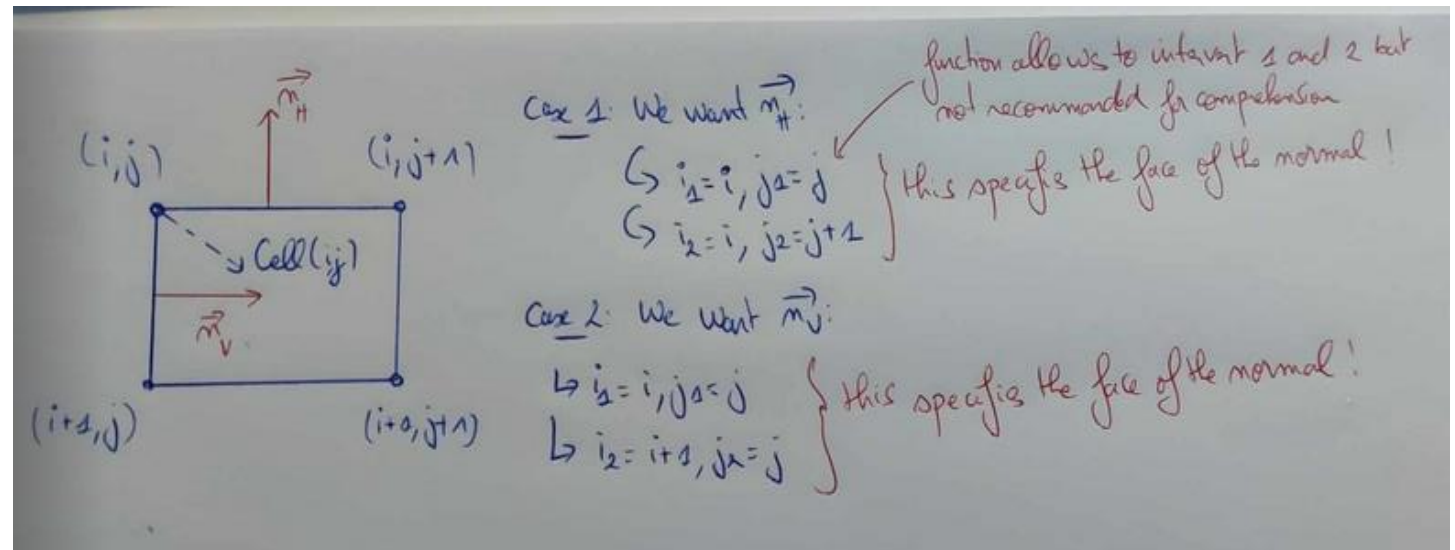 n⃗_H
(i,j)
(i,j+1)
Cell(ij)
n⃗_V
(i+1,j)
(i+1,j+1)
Case 1: We want n⃗_H:
↳ i₁=i, j1=j
↳ i₂=i, j2=j+1
function allows to 1 and 2 but
not recommanded for comprehension
} this specifis the face of the normal !
Case 2: We want n⃗_V:
↳ i₁=i, j1=j
↳ i₂=i+1, j2=j
} this specifies the face of the normal !